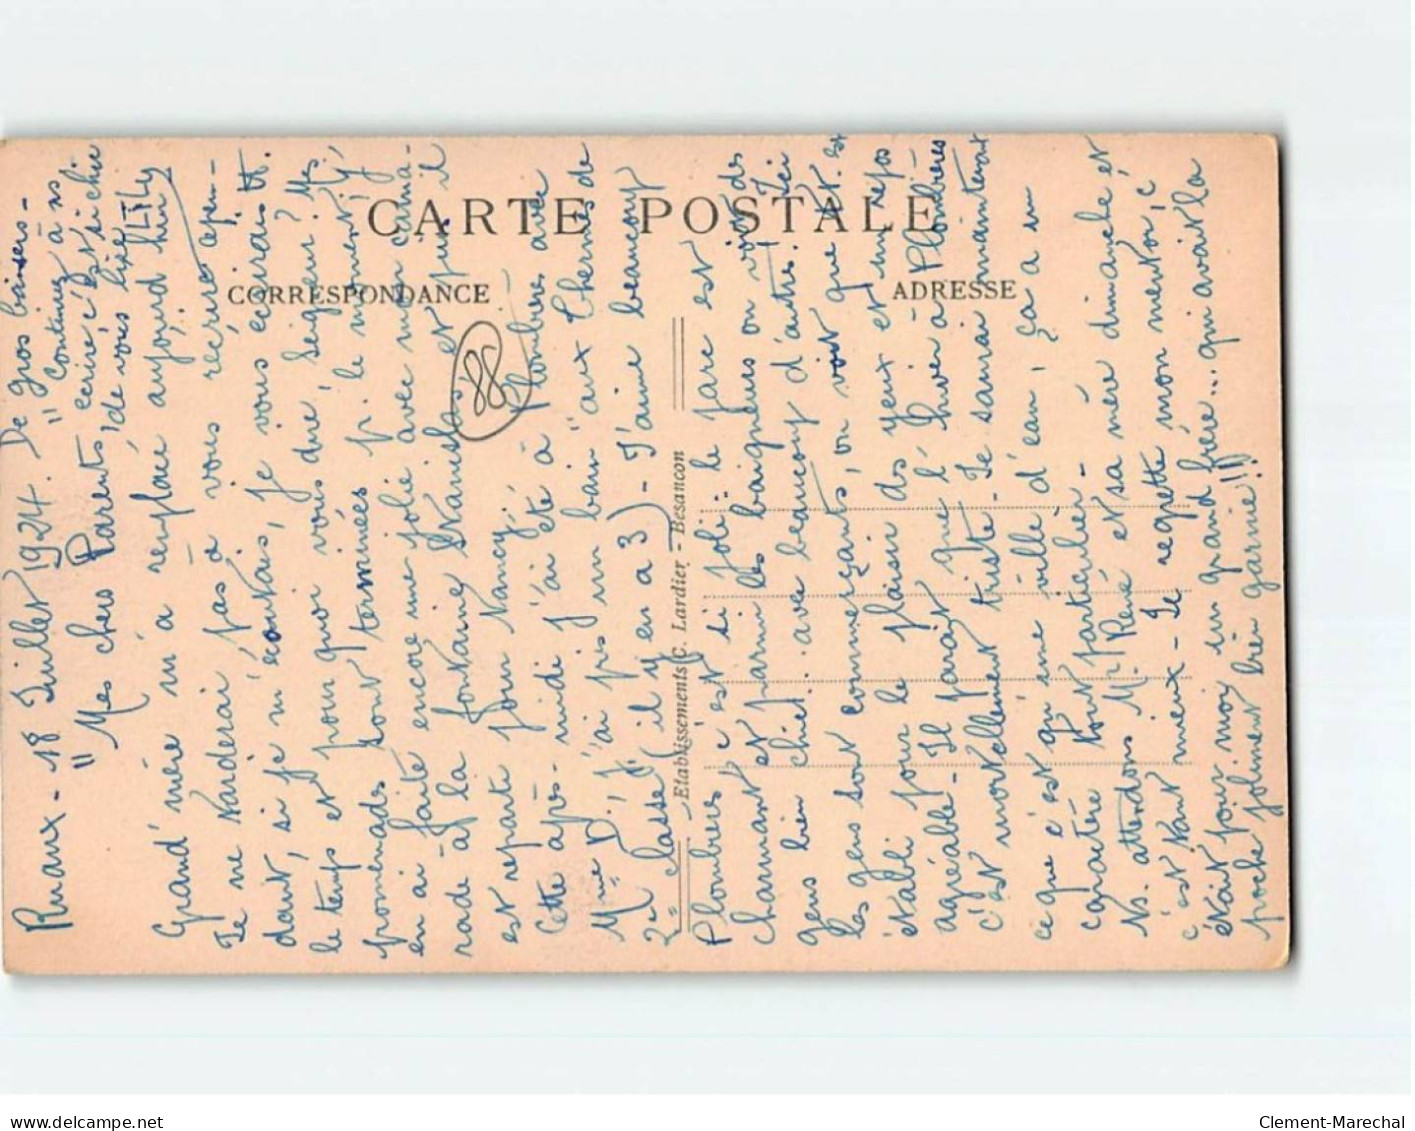 CARTE POSTALE
CORRESPONDANCE
ADRESSE
Etablissements C. Lardier - Besançon
Ruaux - 18 Juillet 1924.
De gros baisers -
"Continuez à ns
écrire c'est si chic
de vous lire
LILY
"Mes chers Parents,
Grand'mère m'a remplacé aujourd'hui
Je ne tarderai pas à vous récrire cepen-
dant, si je m'écoutais, je vous écrirais tt.
le temps et pour quoi vous dire, Seigneur? Mes
promenads sont terminées p. le moment j'
en ai faite encore une jolie avec mon cama-
rade à la fontaine Stanislas et puis il
est reparti pour Nancy.
Cette après-midi j'ai été à Plombières avec
Mme D. j'ai pris un bain "aux Thermes de
2e classe (il y en a 3) - J'aime beaucoup
Plombières c'est si joli: le parc est
charmant et parmi les baigneurs on voit des
gens bien chics.. avec beaucoup d'autres! Ici
les gens sont commerçants, on voit que tt. est
établi pour le plaisir des yeux et un repos
agréable - Il paraît que l'hiver à Plombières
c'est mortellement triste - Je saurai maintenant
ce que c'est qu'une ville d'eau, ça a un
caractère tout particulier -
Ns. attendons Mr René et sa mère dimanche et
c'est tant mieux - Je regrette mon mentor, c'
était pour moi un grand frère... qui avait la
poche joliment bien garnie!!
delcampe.net
Clement-Marechal